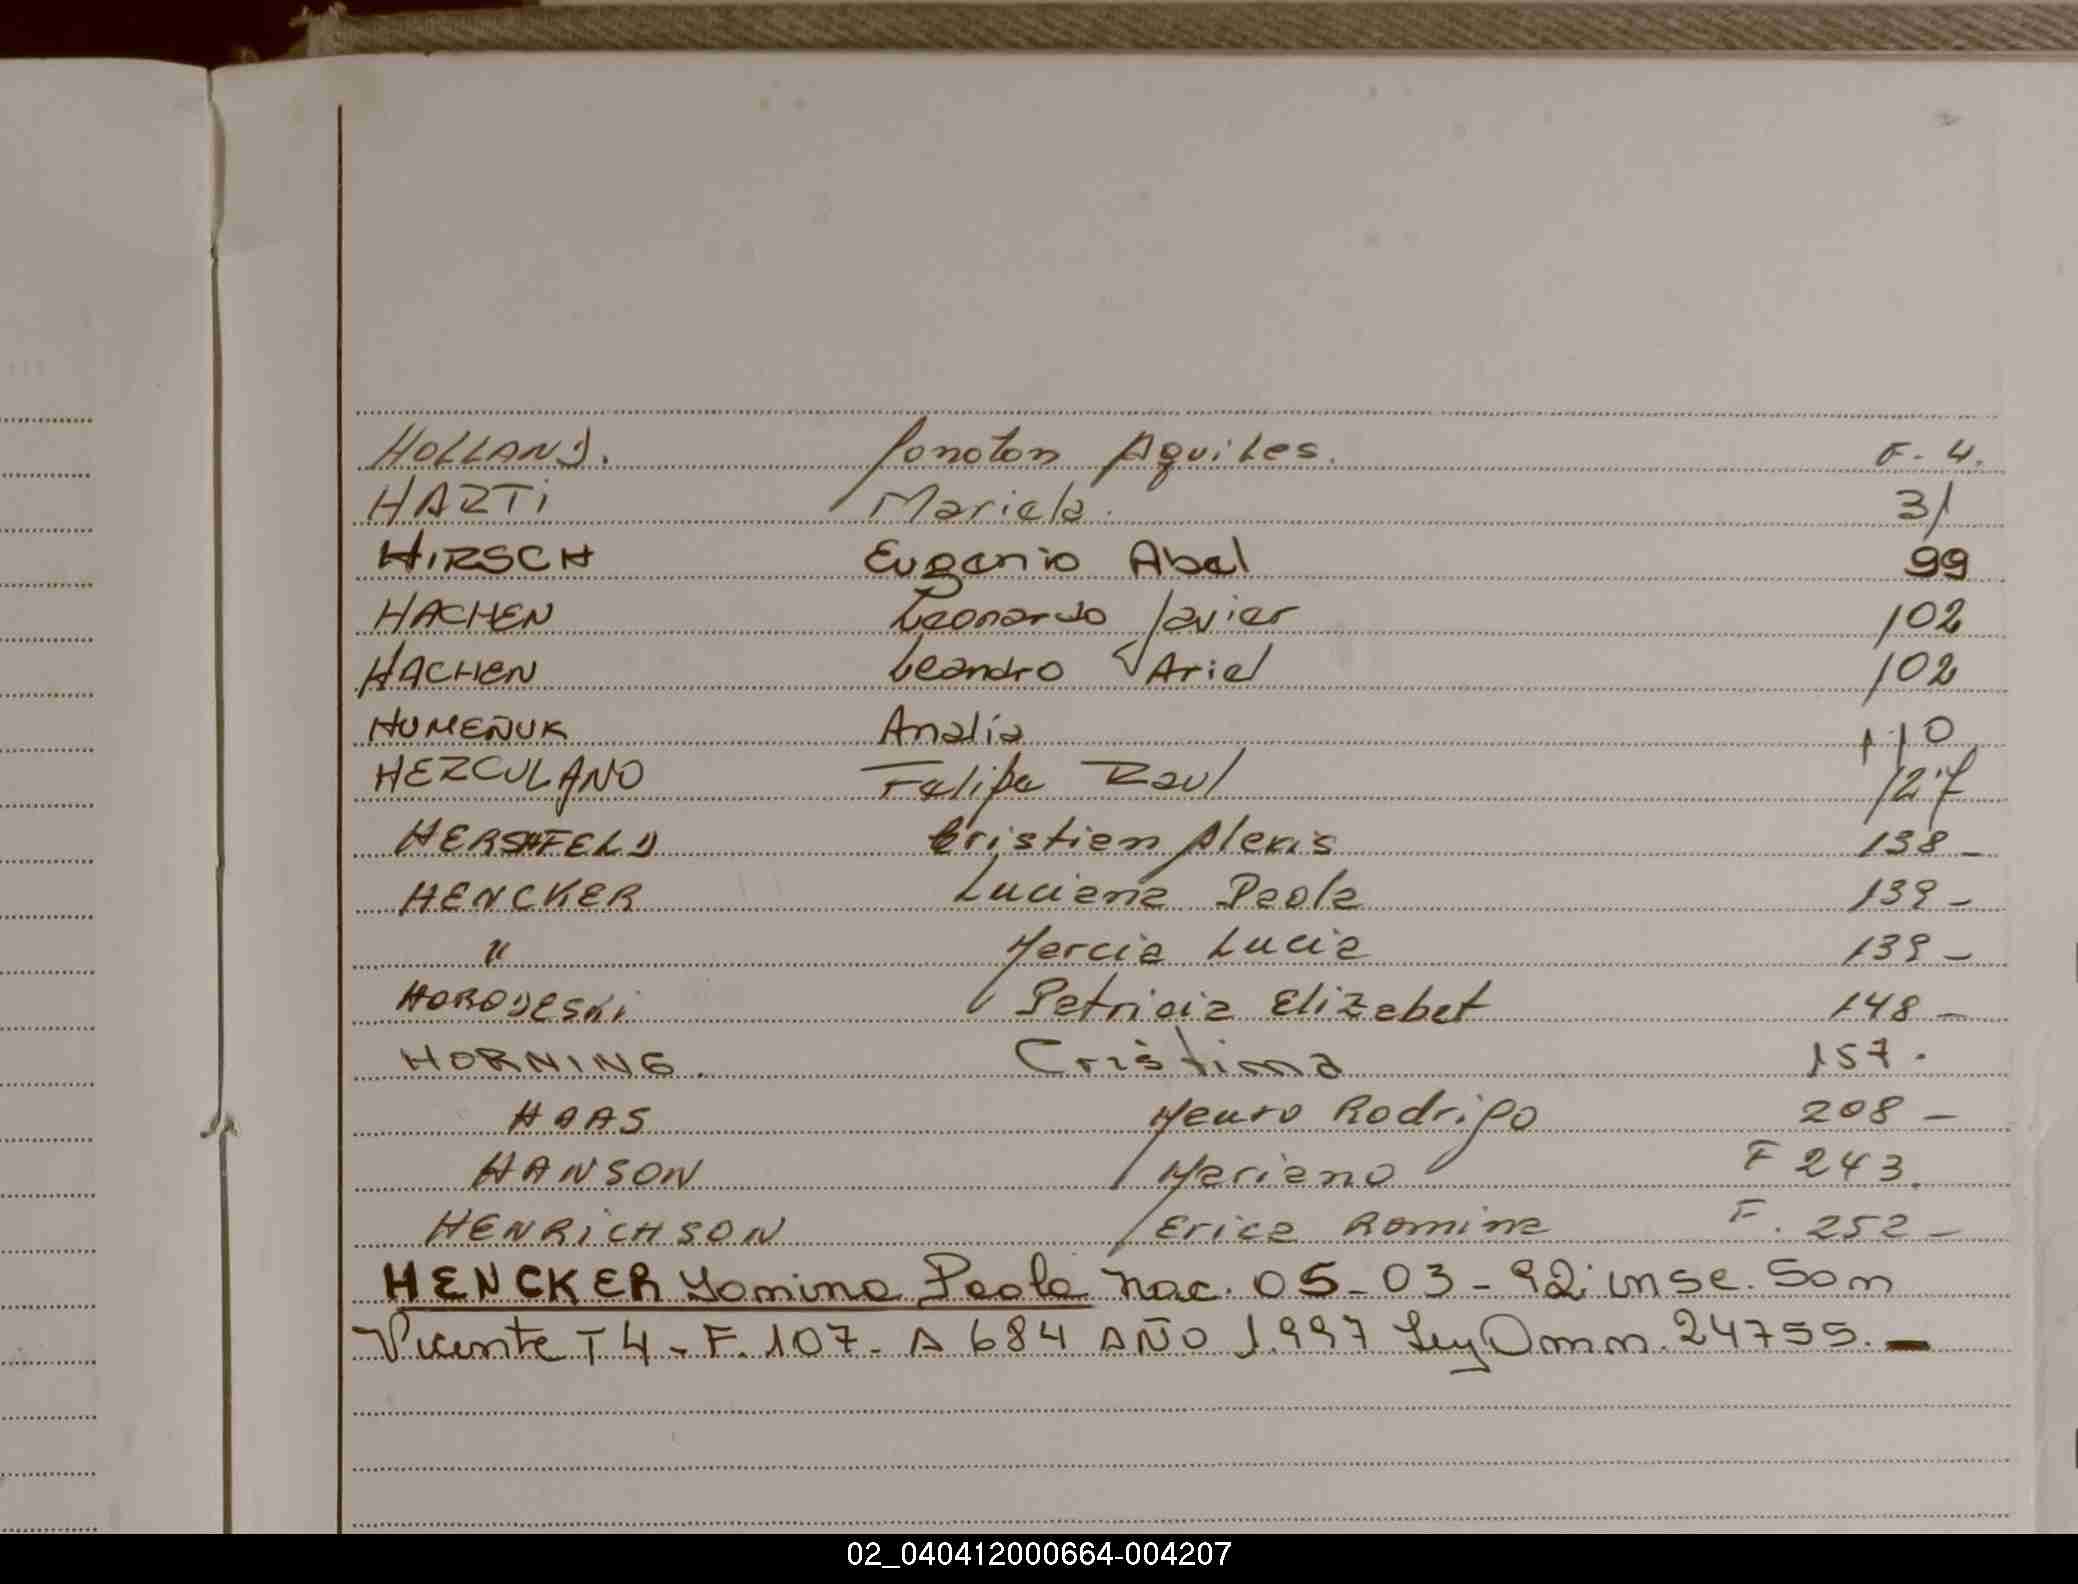 HOLLAND. Jonatan Aquiles. F. 4.
HARTI Mariela. 31
HIRSCH Eugenio Abel 99
HACHEN Leonardo Javier 102
HACHEN Leandro Ariel 102
HUMEÑUK Analia 110
HERCULANO Felipe Raul 127
HERSHFELD Cristian Alexis 138-
HENCKER Luciana Paola 139-
" Marcia Lucia 139-
HORODESKi Patricia Elizabet 148-
HORNING. Cristina 157.
HAAS Mauro Rodrigo 208-
HANSON Mariano F 243.
HENRiCHSON Erica Romina F. 252-
HENCKER Yamina Paola nac. 05-03-92 insc. San
Vicente T 4-F. 107- A 684 AÑO 1.997 Ley Omn. 24755.-
02_040412000664-004207